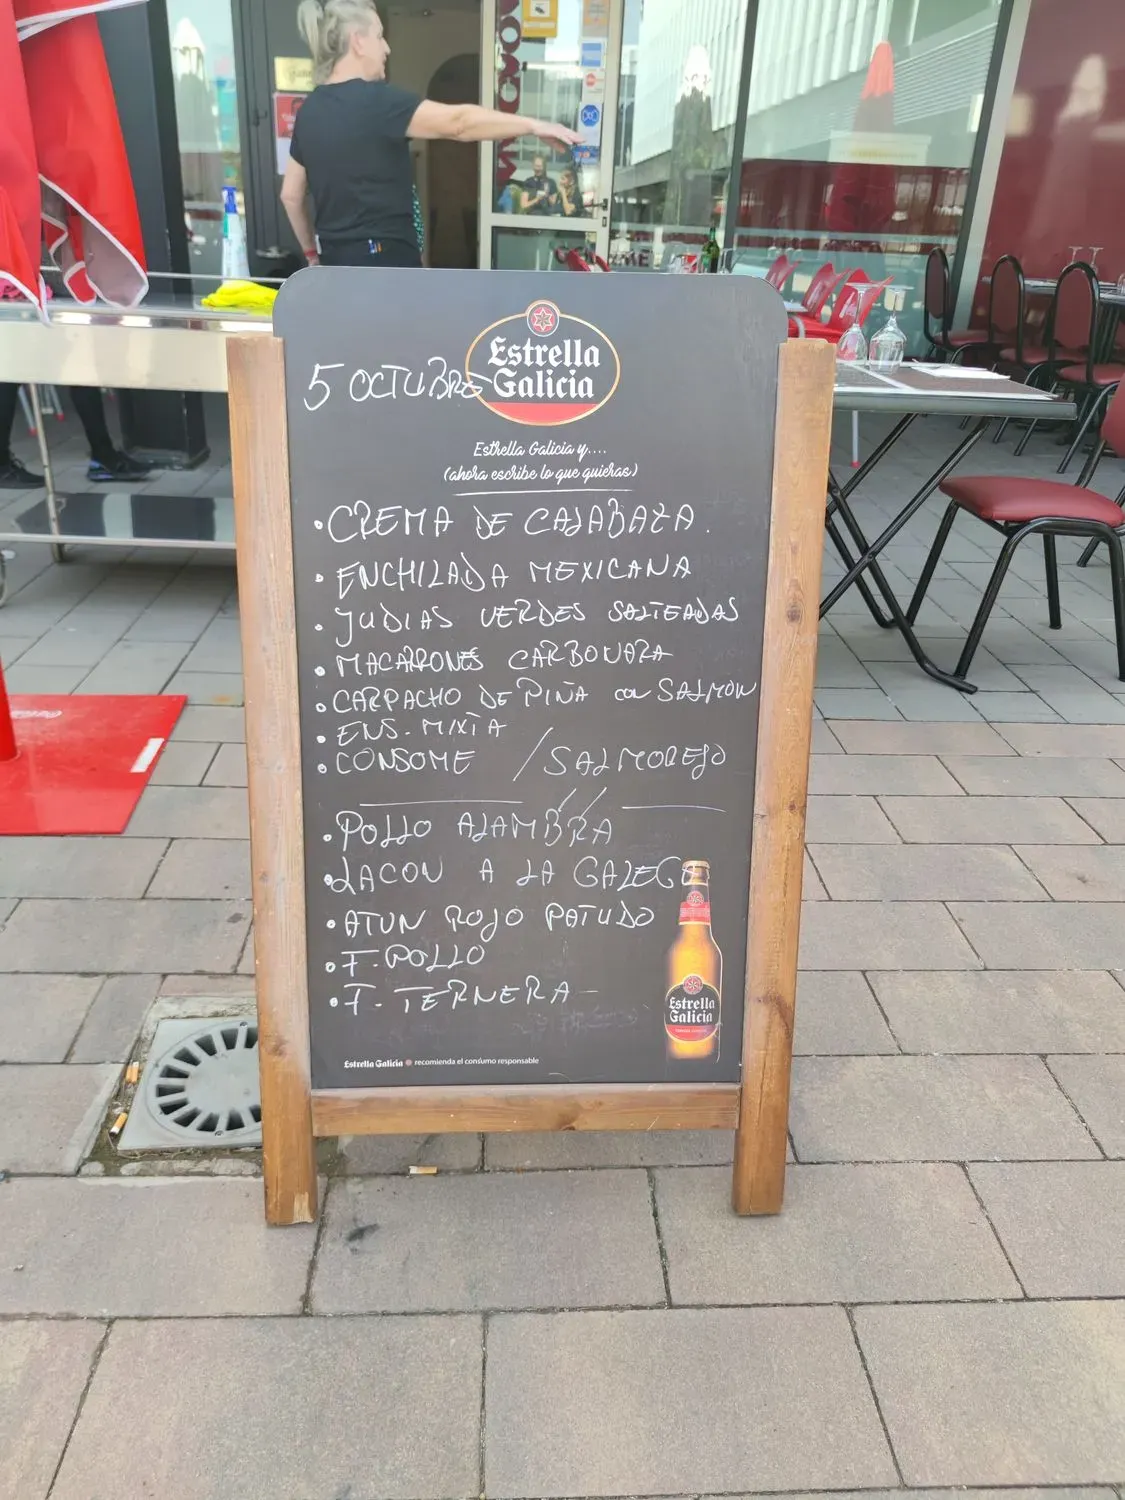 5 OCTUBRE
Estrella
Galicia
Estrella Galicia y....
(ahora escribe lo que quieras)
• CREMA DE CALABAZA.
• ENCHILADA MEXICANA
• JUDIAS VERDES SALTEADAS
• MACARRONES CARBONARA
• CARPACHO DE PIÑA con SALMON
• ENS. MIXTA
• CONSOME / SALMOREJO
• POLLO ALAMBRA
• LACON A LA GALEGO
• ATUN ROJO PATUDO
• F. POLLO
• F. TERNERA
Estrella
Galicia
Estrella Galicia recomienda el consumo responsable